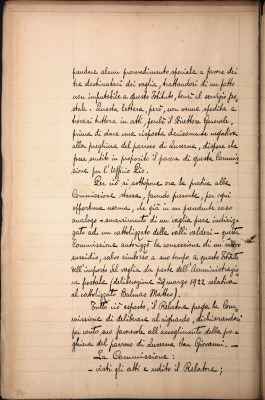 prendere alcun provvedimento speciale a favore dei
tre destinatari dei vaglia, trattandosi di un fatto
non imputabile a questo Istituto, bensì al servizio po-
stale. Questa lettera, però, non venne spedita e
trovasi tuttora in atti, poiché il Direttore Generale,
prima di dare una risposta decisamente negativa
alla preghiera del parroco di Luserna, dispose che
fosse sentito in proposito il parere di questa Commis-
sione per l'Ufficio Pio.
Per ciò si sottopone ora la pratica alla
Commissione stessa, facendo presente, per ogni
opportuna norma, che già in un precedente caso
analogo - smarrimento di un vaglia pure indiriz-
zato ad un cattolizzato delle valli valdesi - questa
Commissione autorizzò la concessione di un
sussidio, salvo rimborso a suo tempo a questo Istituto
dell'importo del vaglia da parte dell'Amministrazio-
ne postale (deliberazione 29 marzo 1922 relativa
al cattolizzato Balmas Matteo).
Tutto ciò esposto, il Relatore prega la Com-
missione di deliberare al riguardo, dichiarandosi
per conto suo favorevole all'accoglimento della pre-
ghiera del parroco di Luserna San Giovanni. -
La Commissione:
- visti gli atti e udito il Relatore;